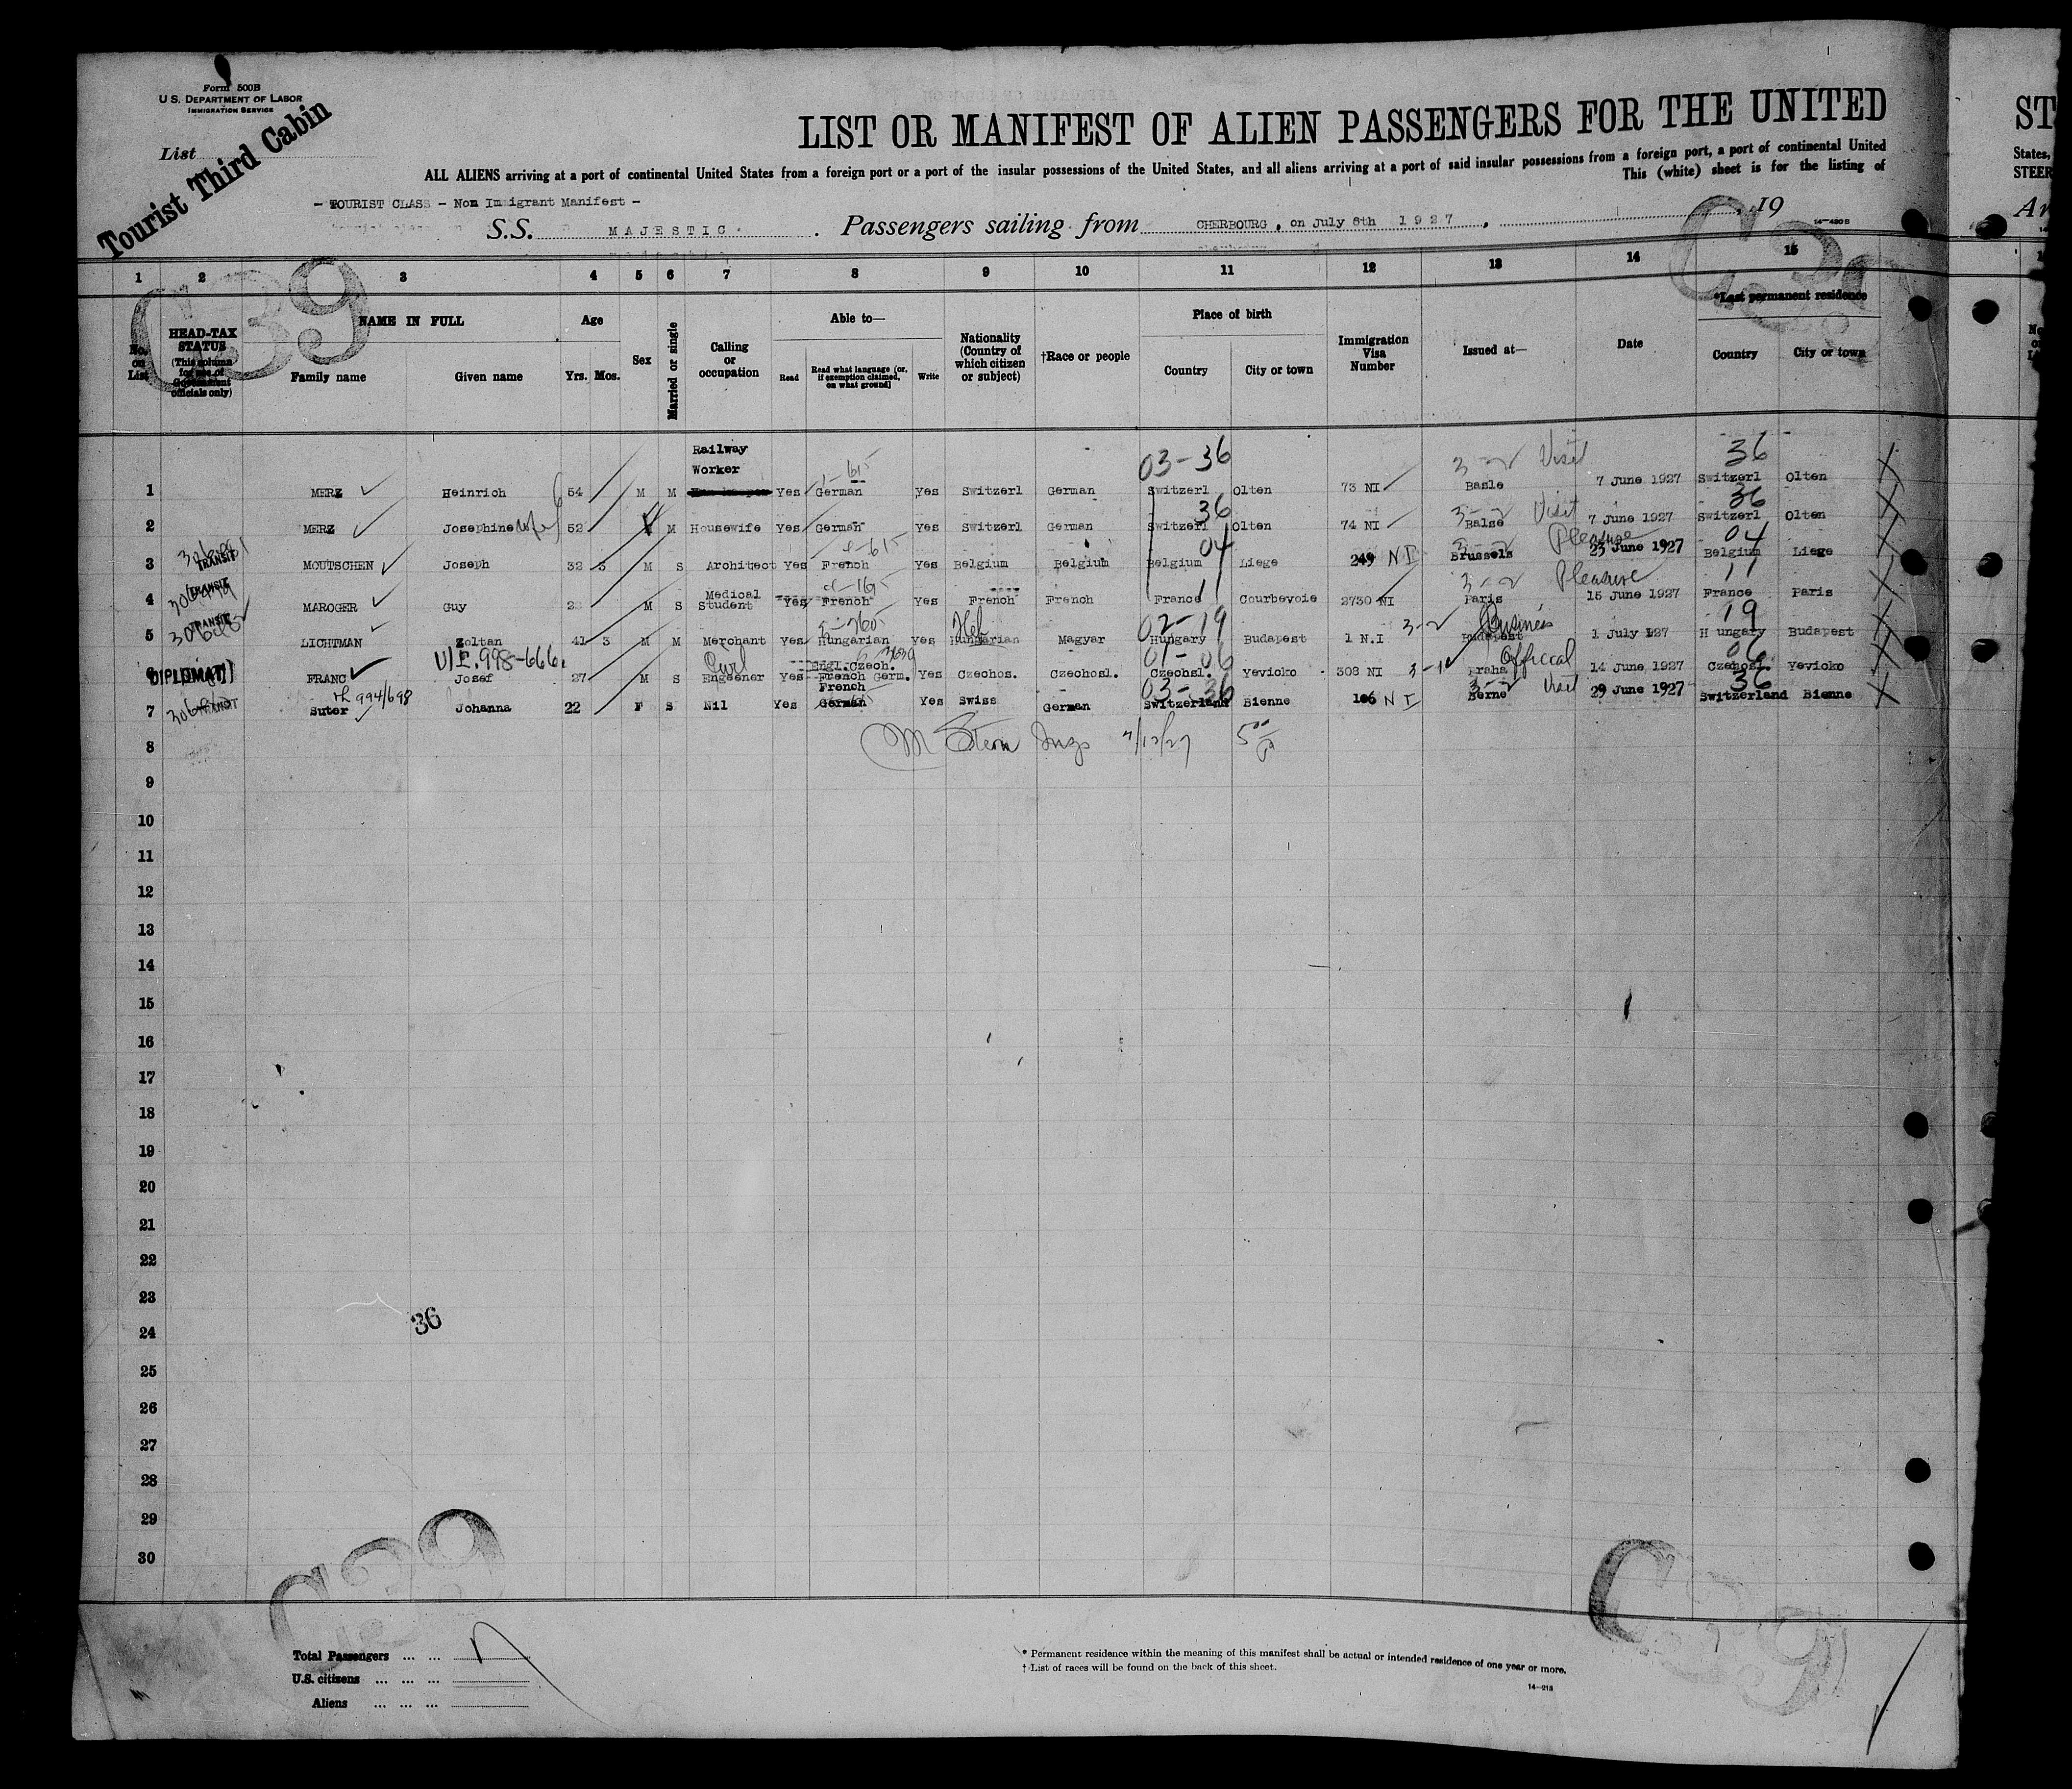 Form 500B
U.S. DEPARTMENT OF LABOR
IMMIGRATION SERVICE
List
Tourist Third Cabin
LIST OR MANIFEST OF ALIEN PASSENGERS FOR THE UNITED
ST
ALL ALIENS arriving at a port of continental United States from a foreign port or a port of the insular possessions of the United States, and all aliens arriving at a port of said insular possessions from a foreign port, a port of continental United
States,
This (white) sheet is for the listing of
STEER
- TOURIST CLASS - Non Immigrant Manifest -
S.S. MAJESTIC. Passengers sailing from CHERBOURG, on July 6th 1927, 19
14-480 B
1 2 3 4 5 6 7 8 9 10 11 12 13 14 15
C39
No. on List
HEAD-TAX STATUS (This column for use of Government officials only)
NAME IN FULL Family name Given name
Age Yrs. Mos.
Sex
Married or single
Calling or occupation
Able to— Read Read what language (or, if exemption claimed, on what ground) Write
Nationality (Country of which citizen or subject)
†Race or people
Place of birth Country City or town
Immigration Visa Number
Issued at—
Date
*Last permanent residence Country City or town
Railway Worker 03-36 3-2 Visit 36
1 MERZ Heinrich 54 M M Yes German Yes Switzerl German Switzerl Olten 73 NI Basle 7 June 1927 Switzerl Olten
36 3-2 Visit 36
2 MERZ Josephine wife 52 M Housewife Yes German Yes Switzerl German Switzerl Olten 74 NI Balse 7 June 1927 Switzerl Olten
04 3-2 Pleasure 04
3 TRANSIT MOUTSCHEN Joseph 32 3 M S Architect Yes French Yes Belgium Belgium Belgium Liege 249 NI Brussels 23 June 1927 Belgium Liege
11 3-2 Pleasure 11
4 TRANSIT MAROGER Guy M S Medical Student Yes French Yes French French France Courbevoie 2730 NI Paris 15 June 1927 France Paris
Heb 02-19 3-2 Business 19
5 TRANSIT LICHTMAN Zoltan 41 3 M M Merchant Yes Hungarian Yes Hungarian Magyar Hungary Budapest 1 N.I Budapest 1 July 127 H ungary Budapest
V/L.998-666. 01-06 3-1 Official 06
6 DIPLOMAT FRANC Josef 27 M S Engeener Yes Engl.Czech. French Germ. Yes Czechos. Czechosl. Czechsl. Yevicko 308 NI Praha 14 June 1927 Czehosl. Yevicko
994/698 03-36 3-2 Visit 36
7 Suter Johanna 22 F S Nil Yes French German Yes Swiss German Switzerland Bienne 106 NI Berne 29 June 1927 Switzerland Bienne
8 M Stern Insp 7/12/27
9
10
11
12
13
14
15
16
17
18
19
20
21
22
23
36
24
25
26
27
28
29
30
C39
C39
Total Passengers ... ... 7
U.S. citizens ... ... ...
Aliens ... ... ...
* Permanent residence within the meaning of this manifest shall be actual or intended residence of one year or more.
† List of races will be found on the back of this sheet.
14-213